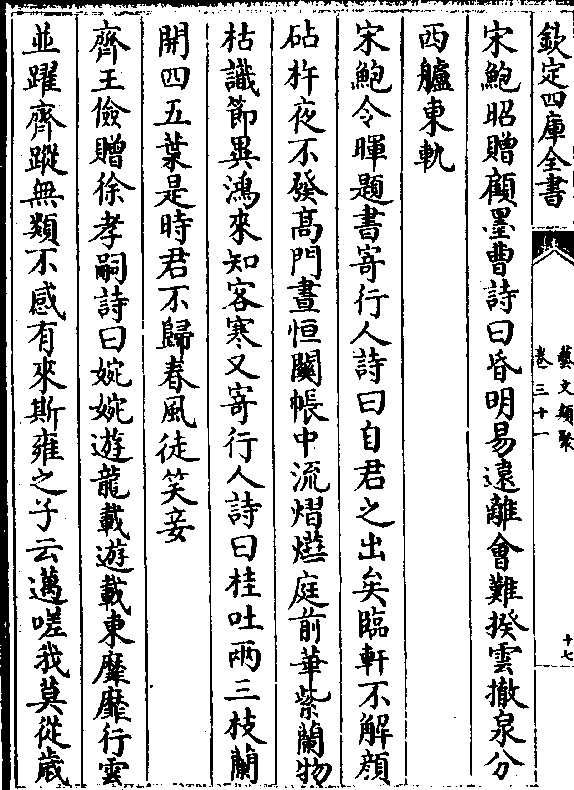 欽定四庫全書
藝文類聚
卷三十一
十七
宋鮑昭贈顧墨曹詩曰昏明易遠離會難揆雲撤泉分
西艫東軌
宋鮑令暉題書寄行人詩曰自君之出矣臨軒不解顔
砧杵夜不發髙門晝恒關帳中流熠燿庭前華紫蘭物
枯識節異鴻來知客寒又寄行人詩曰桂吐兩三枝蘭
開四五葉是時君不歸春風徒笑妾
齊王儉贈徐孝嗣詩曰婉婉遊龍載遊載東靡靡行雲
並躍齊蹤無類不感有來斯雍之子云邁嗟我莫從歲